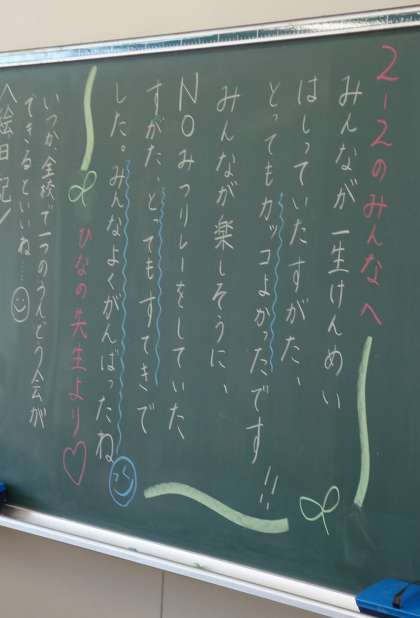 2-2のみんなへ
みんなが一生けんめい
はしっていたすがた、
とってもカッコよかったです!!
みんなが楽しそうに、
NOみつリレーをしていた
すがた、とてもすてきで
した。みんなよくがんばったね
ひなの先生より♡
いつか、全校で一つのうんどう会が
できるといいね……
絵日記